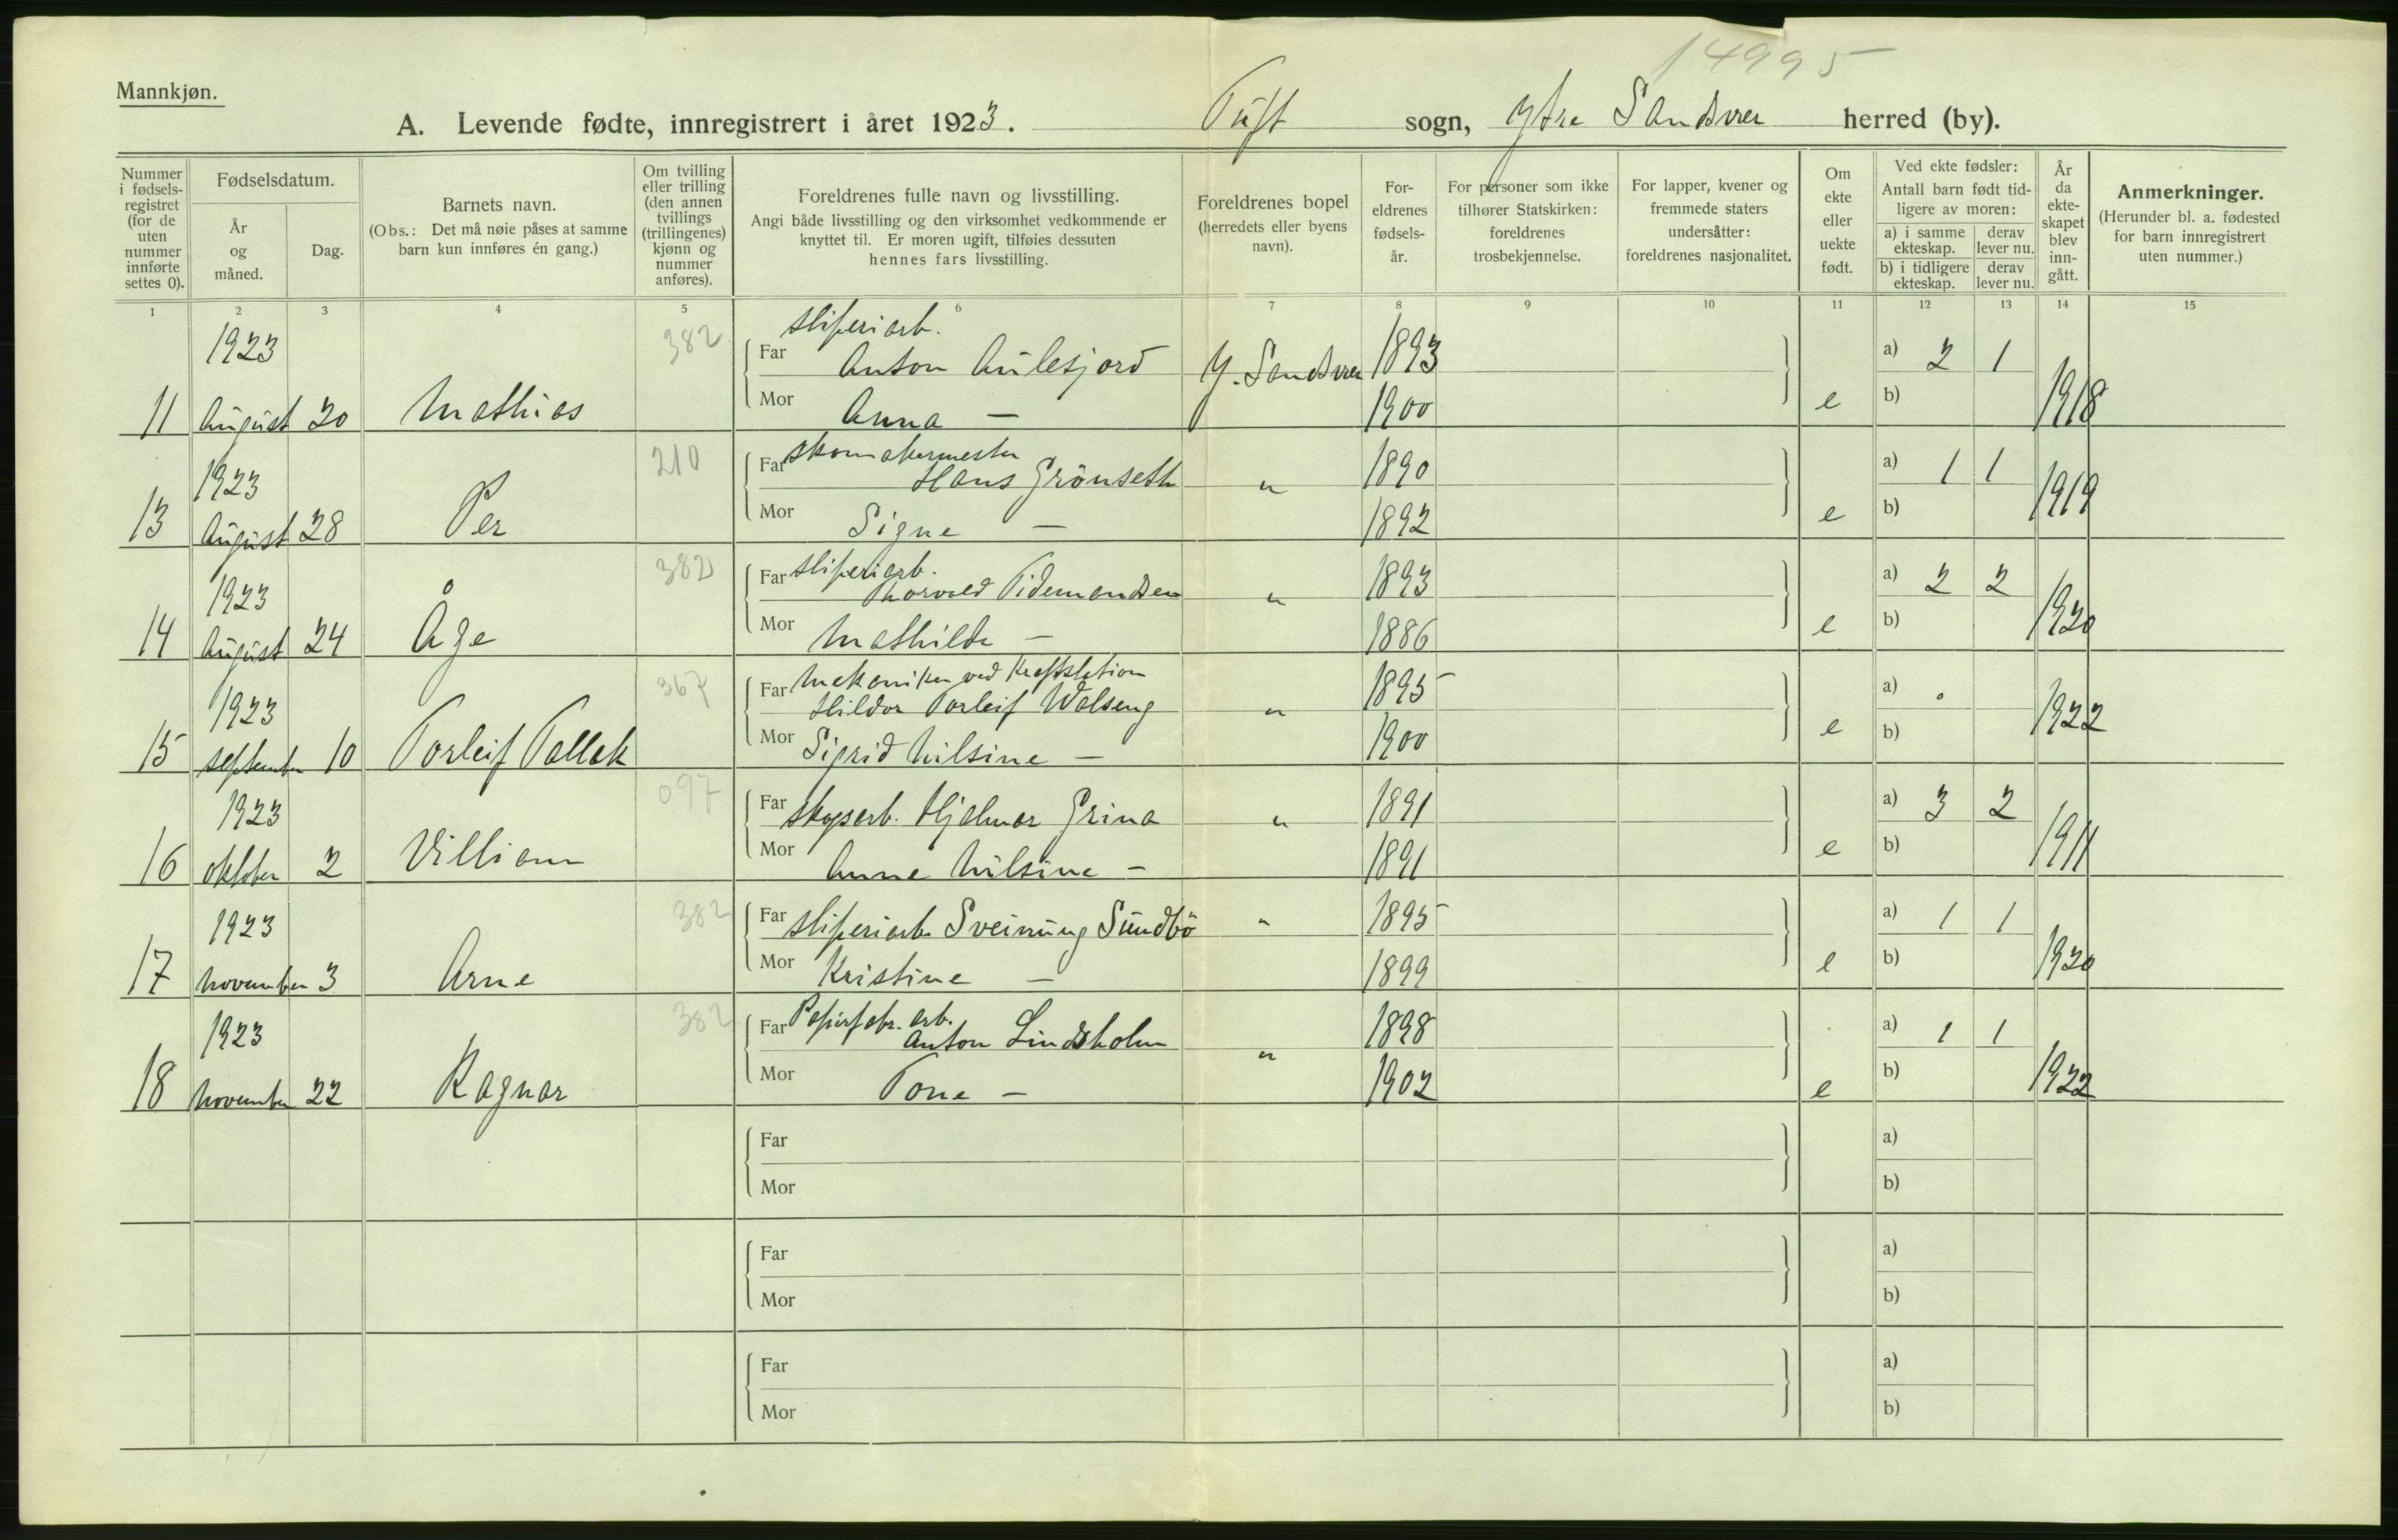 14995
Mannkjøn.
A. Levende fødte, innregistrert i året 1923. Tuft sogn, Ytre Sandsvær herred (by).
Nummer i fødsels-registret (for de uten nummer innførte settes 0).
Fødselsdatum.
År og måned.
Dag.
Barnets navn.
(Obs.: Det må nøie påses at samme barn kun innføres én gang.)
Om tvilling eller trilling (den annen tvillings (trillingenes) kjønn og nummer anføres).
Foreldrenes fulle navn og livsstilling.
Angi både livsstilling og den virksomhet vedkommende er knyttet til. Er moren ugift, tilføies dessuten hennes fars livsstilling.
Foreldrenes bopel (herredets eller byens navn).
For-eldrenes fødsels-år.
For personer som ikke tilhører Statskirken: foreldrenes trosbekjennelse.
For lapper, kvener og fremmede staters undersåtter: foreldrenes nasjonalitet.
Om ekte eller uekte født.
Ved ekte fødsler:
Antall barn født tid-ligere av moren:
a) i samme ekteskap. derav lever nu.
b) i tidligere ekteskap. derav lever nu.
År da ekte-skapet blev inn-gått.
Anmerkninger.
(Herunder bl. a. fødested for barn innregistrert uten nummer.)
1 2 3 4 5 6 7 8 9 10 11 12 13 14 15
1923 382 sliperiarb.
Far Anton Aulesjord Y. Sandsvær 1893 a) 2 1
11 August 20 Mathias Mor Anna — 1900 e b) 1918
1923 210 Far skomakermester
Hans Grönseth " 1890 a) 1 1
13 August 28 Per Mor Signe — 1892 e b) 1919
1923 382 Far sliperiarb.
Thorvald Tidemandsen " 1893 a) 2 2
14 August 24 Åge Mor Mathilde — 1886 e b) 1920
1923 367 Far Mekaniker ved Kraftstation
Hildor Torleif Walseng " 1895 a) 0
15 september 10 Torleif Tallak Mor Sigrid Nilsine — 1900 e b) 1922
1923 097 Far skogsarb. Hjalmar Grina " 1891 a) 3 2
16 oktober 2 Villiam Mor Anne Nilsine — 1891 e b) 1911
1923 382 Far sliperiarb. Sveinung Sundbö " 1895 a) 1 1
17 November 3 Arne Mor Kristine — 1899 e b) 1920
1923 382 Far Papirfabr. arb.
Anton Lindsholm " 1898 a) 1 1
18 November 22 Ragnar Mor Tone — 1902 e b) 1922
Far a)
Mor b)
Far a)
Mor b)
Far a)
Mor b)